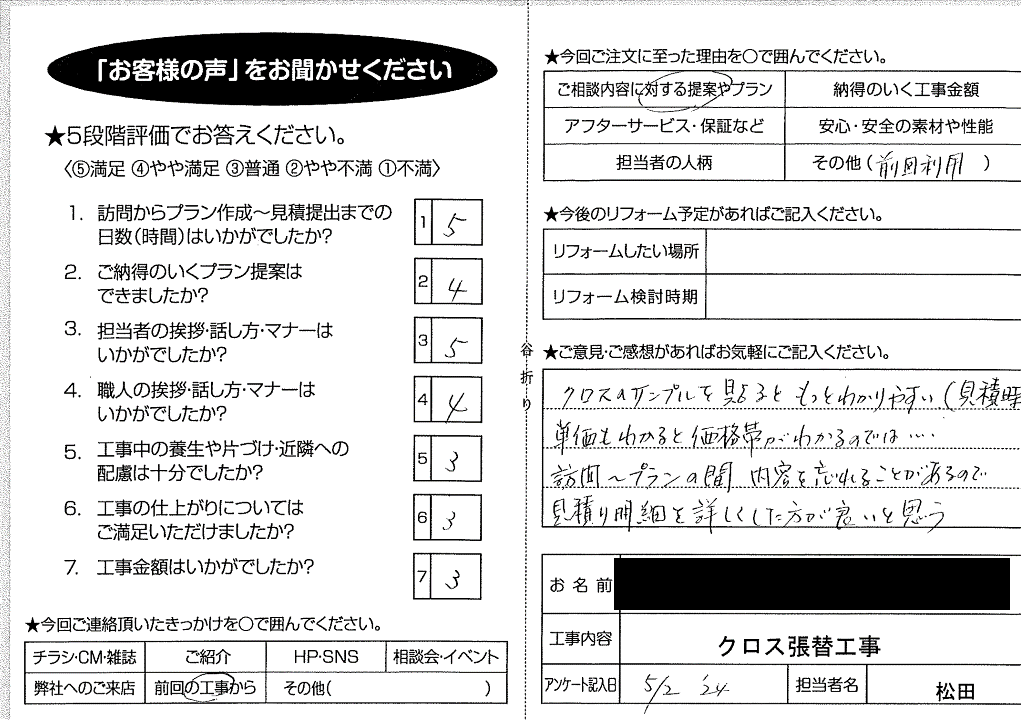 「お客様の声」をお聞かせください
★5段階評価でお答えください。
〈⑤満足 ④やや満足 ③普通 ②やや不満 ①不満〉
1. 訪問からプラン作成～見積提出までの
日数(時間)はいかがでしたか?
1 5
2. ご納得のいくプラン提案は
できましたか?
2 4
3. 担当者の挨拶・話し方・マナーは
いかがでしたか?
3 5
4. 職人の挨拶・話し方・マナーは
いかがでしたか?
4 4
5. 工事中の養生や片づけ・近隣への
配慮は十分でしたか?
5 3
6. 工事の仕上がりについては
ご満足いただけましたか?
6 3
7. 工事金額はいかがでしたか?
7 3
★今回ご連絡頂いたきっかけを○で囲んでください。
チラシ・CM・雑誌 ご紹介 HP・SNS 相談会・イベント
弊社へのご来店 前回の工事から その他( )
谷折り
★今回ご注文に至った理由を○で囲んでください。
ご相談内容に対する提案やプラン 納得のいく工事金額
アフターサービス・保証など 安心・安全の素材や性能
担当者の人柄 その他(前回利用)
★今後のリフォーム予定があればご記入ください。
リフォームしたい場所
リフォーム検討時期
★ご意見・ご感想があればお気軽にご記入ください。
クロスのサンプルを見るともっとわかりやすい(見積時
単価もわかると価格帯がわかるのでは…
訪問～プランの間 内容を忘れることがあるので
見積り明細を詳しくした方が良いと思う
お名前
工事内容 クロス張替工事
アンケート記入日 5/2 '24 担当者名 松田